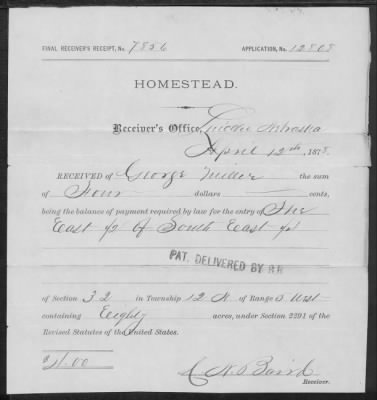 FINAL RECEIVER'S RECEIPT, No. 7856 APPLICATION, No. 12808
HOMESTEAD.
Receiver's Office, Nebraska
April 12th, 1878.
RECEIVED OF George Miller the sum
of Four dollars cents,
being the balance of payment required by law for the entry of The
East 1/2 of South East 1/4
PAT. DELIVERED BY R R
of Section 32 in Township 12 N of Range 5 West
containing Eighty acres, under Section 2291 of the
Revised Statutes of the United States.
$4.00
Baird
Receiver.